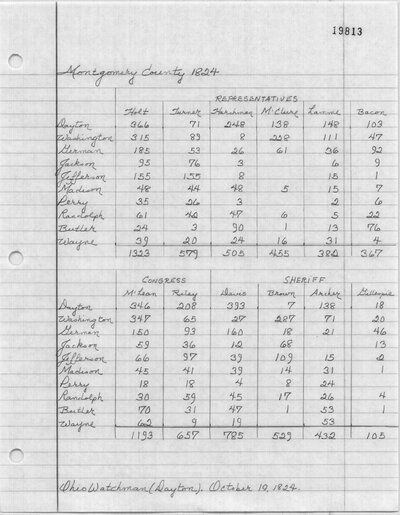 19813
Montgomery County 1824
REPRESENTATIVES
Holt Turner Harshman McClure Lamme Bacon
Dayton 366 71 248 138 148 103
Washington 315 89 8 228 111 47
German 185 53 26 61 36 92
Jackson 95 76 3 6 9
Jefferson 155 155 8 15 1
Madison 48 44 48 5 15 7
Perry 35 26 3 2 6
Randolph 61 42 47 6 5 22
Butler 24 3 90 1 13 76
Wayne 39 20 24 16 31 4
1323 579 505 455 382 367
CONGRESS SHERIFF
McLean Davis Brown Archer Gillespie
Dayton 346 208 393 7 138 18
Washington 347 65 27 287 71 20
German 150 93 160 18 21 46
Jackson 59 36 12 68 13
Jefferson 66 97 39 109 15 2
Madison 45 41 39 14 31 1
Perry 18 18 4 8 24
Randolph 30 59 45 17 26 4
Butler 70 31 47 1 53 1
Wayne 62 9 19 53
1193 657 785 529 432 105
Ohio Watchman (Dayton). October 19, 1824.